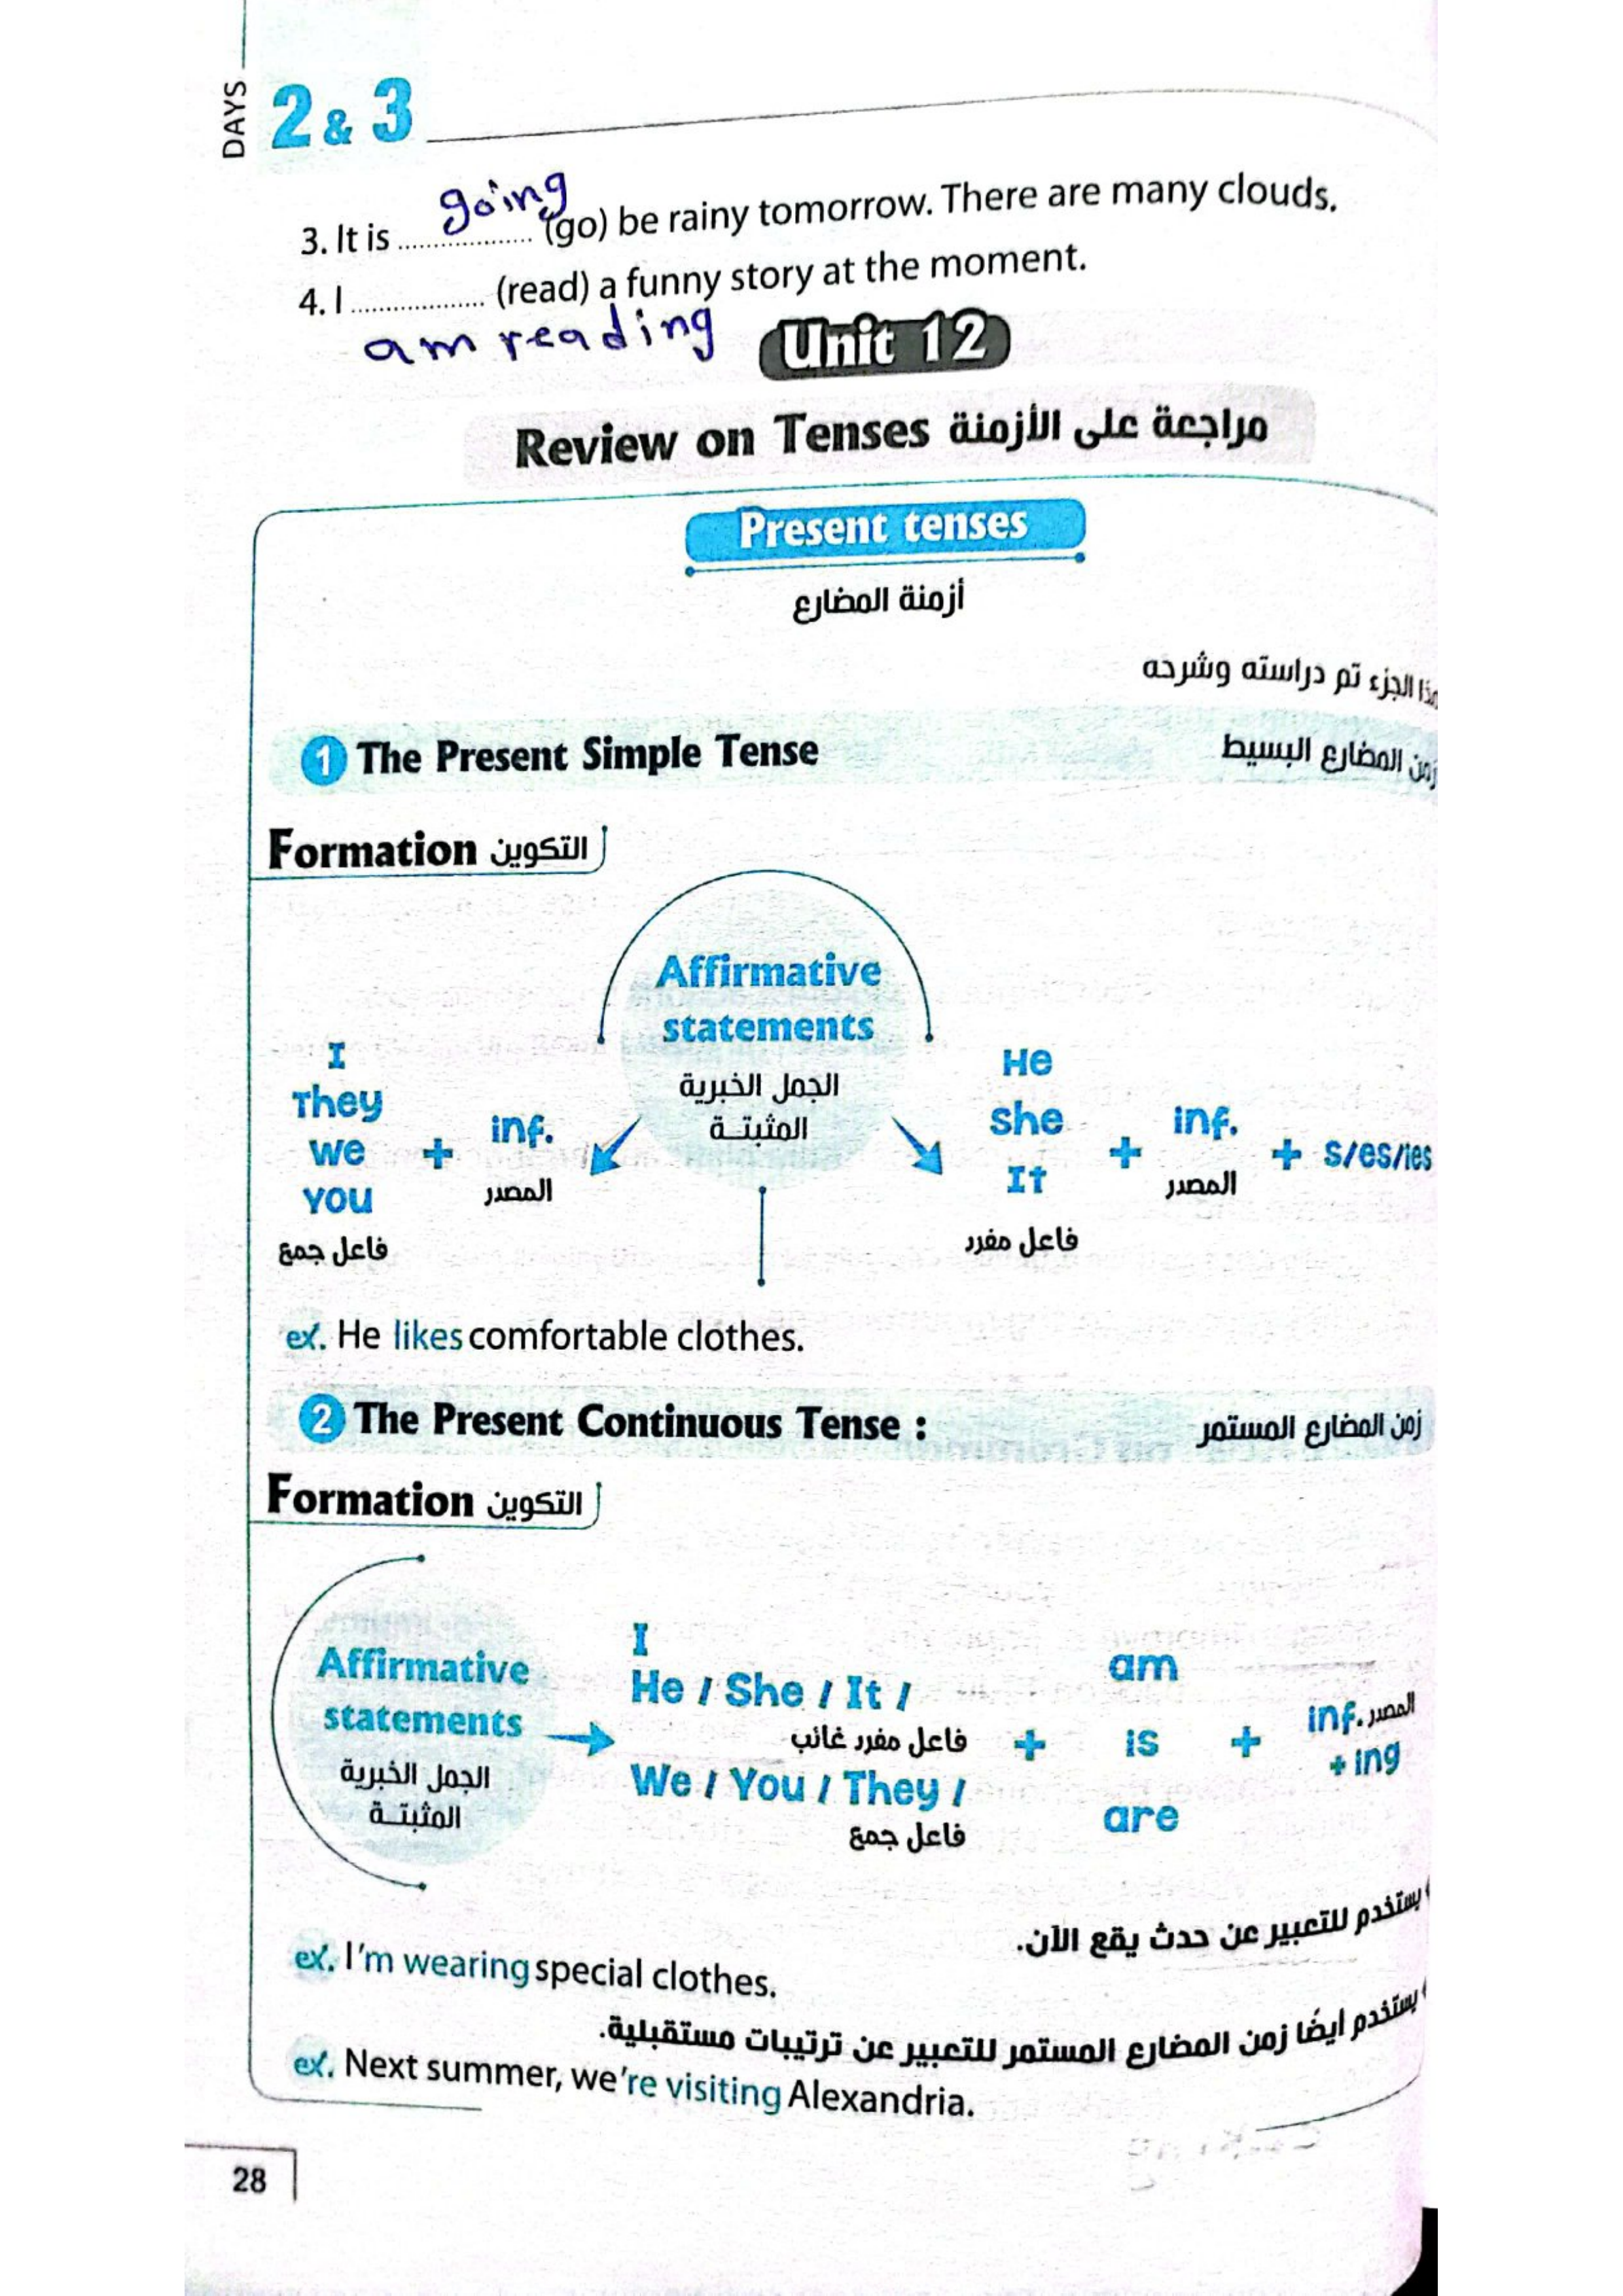 DAYS 2 & 3
3. It is going (go) be rainy tomorrow. There are many clouds.
4. I ................ (read) a funny story at the moment.
am reading
Unit 12
Review on Tenses مراجعة على الأزمنة
Present tenses
أزمنة المضارع
هذا الجزء تم دراسته وشرحه
1 The Present Simple Tense زمن المضارع البسيط
Formation التكوين
Affirmative
statements
الجمل الخبرية
المثبتة
I
They
we
you
فاعل جمع
+
inf.
المصدر
He
she
It
فاعل مفرد
+
inf.
المصدر
+ s/es/ies
ex. He likes comfortable clothes.
2 The Present Continuous Tense : زمن المضارع المستمر
Formation التكوين
Affirmative
statements
الجمل الخبرية
المثبتة
I
He / She / It /
فاعل مفرد غائب
We / You / They /
فاعل جمع
+
am
is
are
+
inf. المصدر
+ ing
يستخدم للتعبير عن حدث يقع الآن.
ex. I'm wearing special clothes.
يستخدم أيضًا زمن المضارع المستمر للتعبير عن ترتيبات مستقبلية.
ex. Next summer, we're visiting Alexandria.
28